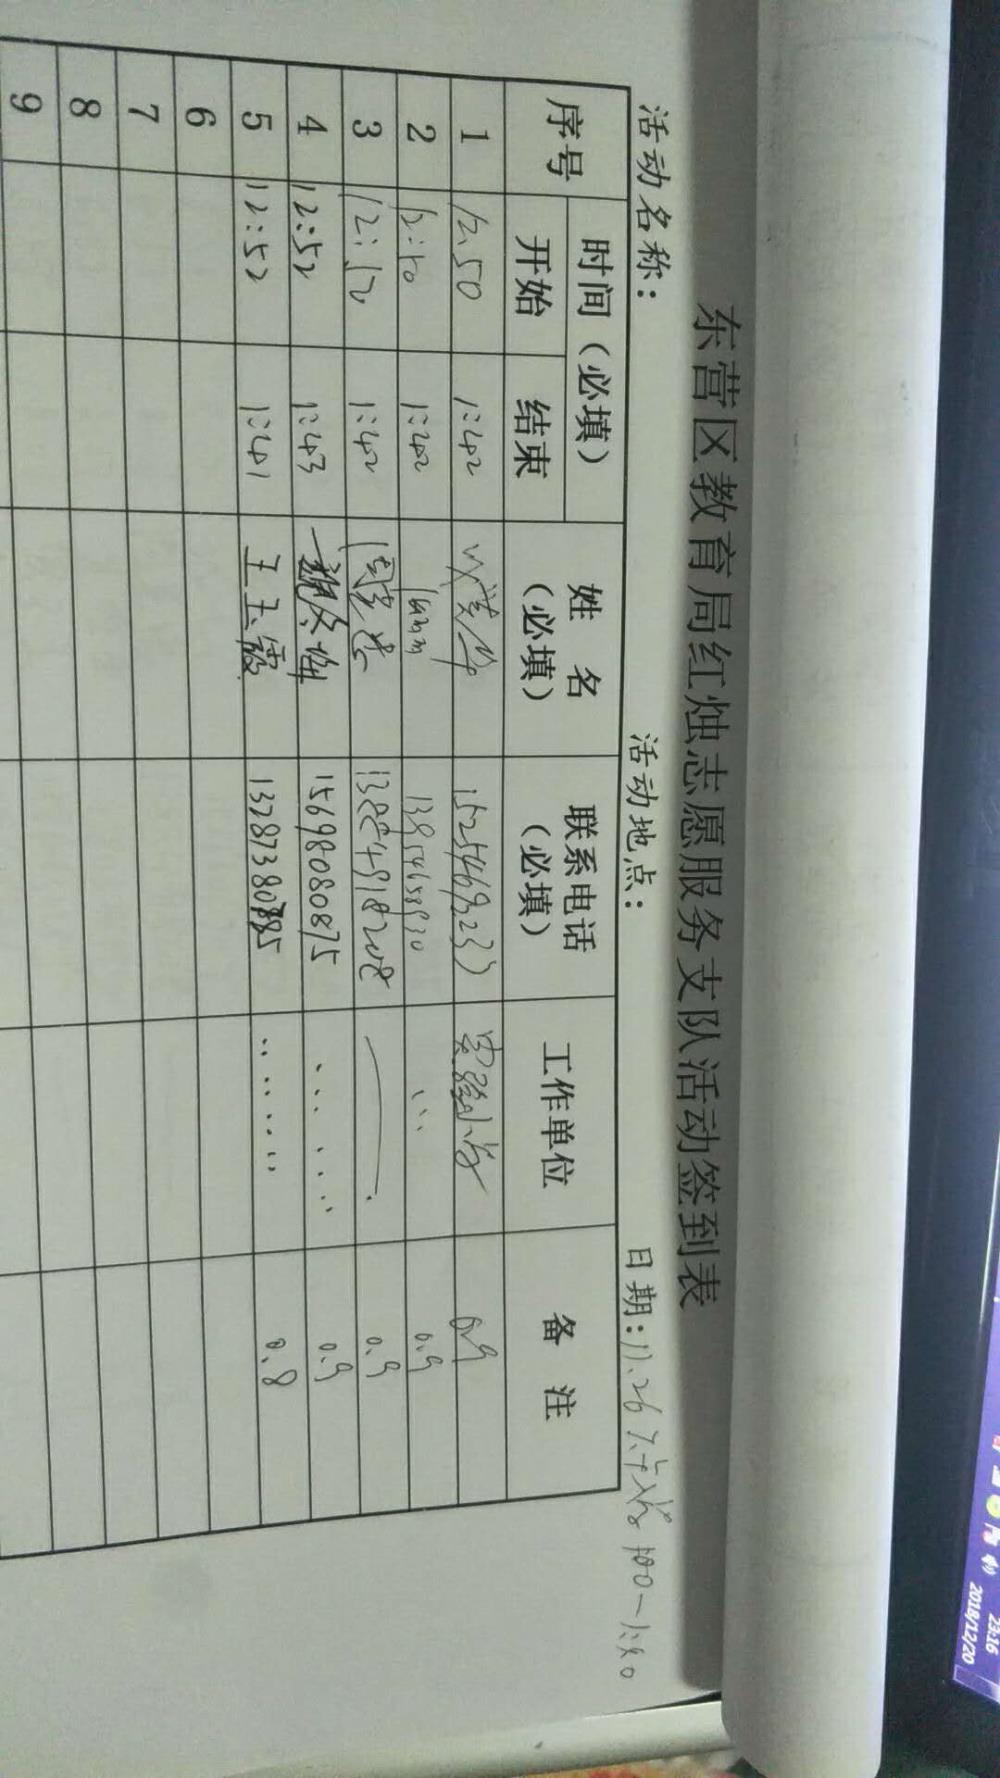 东营区教育局红烛志愿服务支队活动签到表
活动名称： 活动地点： 日期：11.26
序号 时间（必填） 姓名（必填） 联系电话（必填） 工作单位 备注
开始 结束
1 12:50 1:42 15254692233 实验小学 0.9
2 12:50 1:42 13854658930 0.9
3 12:52 1:42 0.9
4 12:52 1:43 15698080875 0.9
5 12:52 1:41 王玉霞 13287380885 0.8
6
7
8
9
23:16
2018/12/20